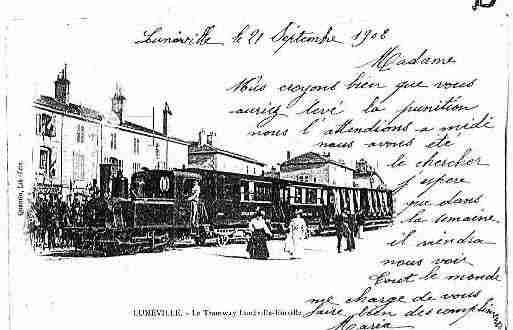 Lunéville le 21 Septembre 1908
Madame
Nus croyons bien que vous
auriez levé la punition
nous l'attendions a midi
nous avons été
le chercher
j'espere
que dans
la semaine
il viendra
nous voir
Tout le monde
me charge de vous
faire bien des compliments
Maria
Quantin, Lib.-Édit.
LUNÉVILLE. - Le Tramway Lunéville-Einville